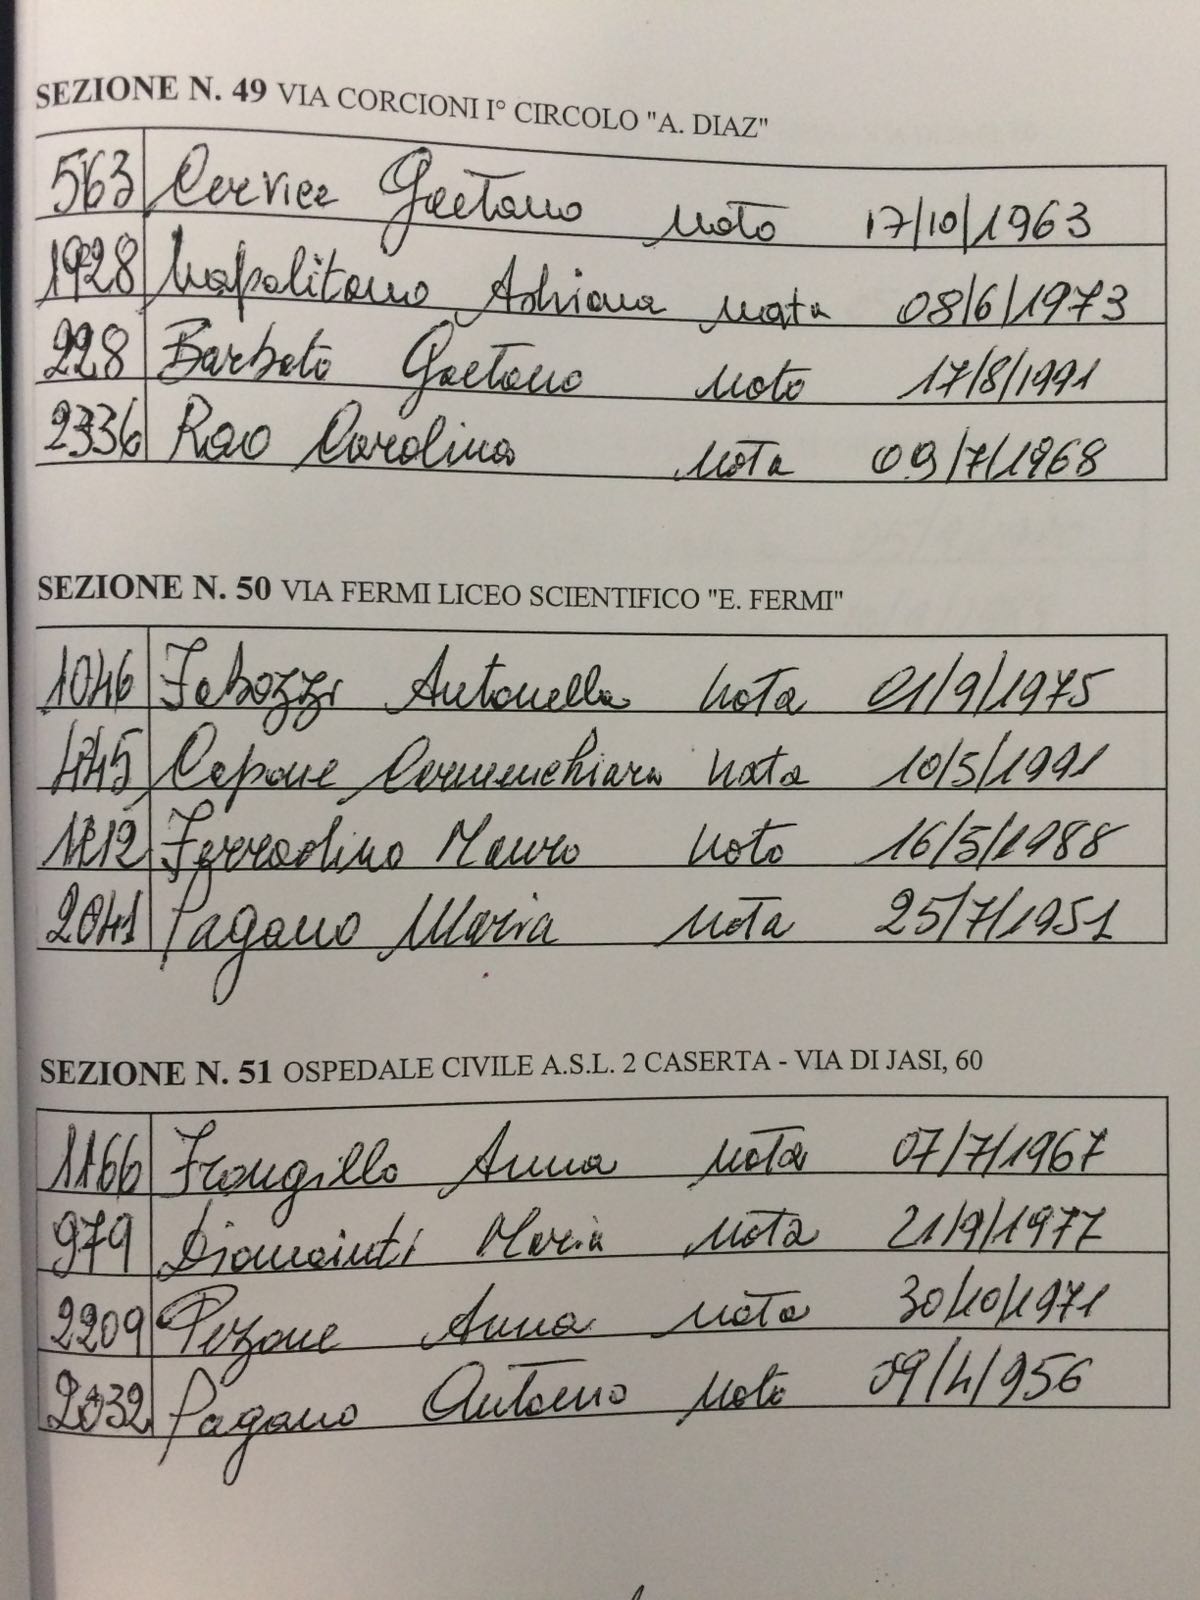 SEZIONE N. 49 VIA CORCIONI I° CIRCOLO "A. DIAZ"
563 Gaetano nato 17/10/1963
1928 Napolitano Adriana nata 08/6/1973
228 Barbato Gaetano nato 17/8/1991
2336 Rao Carolina nata 09/7/1968
SEZIONE N. 50 VIA FERMI LICEO SCIENTIFICO "E. FERMI"
1046 Fabozzi Antonella nata 01/9/1975
445 Capone Carmenchiara nata 10/5/1991
Mauro nato 16/5/1988
2041 Pagano Maria nata 25/7/1951
SEZIONE N. 51 OSPEDALE CIVILE A.S.L. 2 CASERTA - VIA DI JASI, 60
1166 Frongillo Anna nata 07/7/1967
979 Maria nata 21/9/1977
2209 Pezone Anna nata 30/10/1971
2032 Pagano nato 09/4/1956